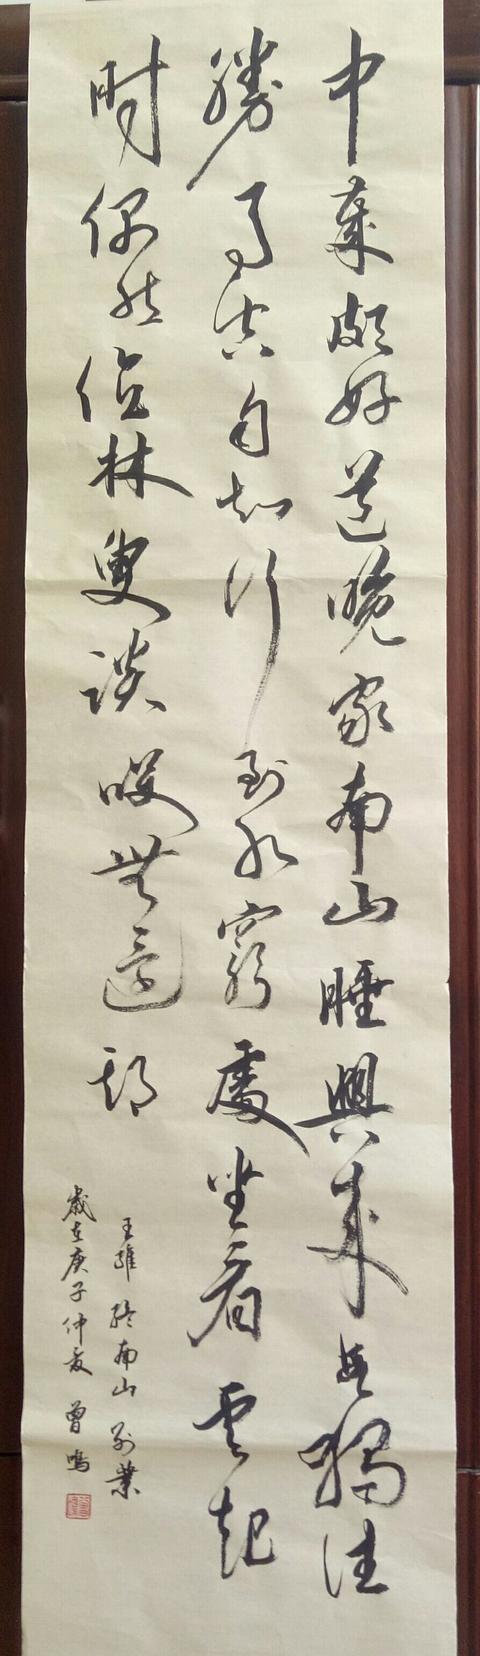 中歲頗好道晚家南山睡興來每獨往
勝事空自知行到水窮處坐看雲起
时偶然值林叟談咲無還期
王維 終南山别業
歲在庚子仲夏 曾鳴